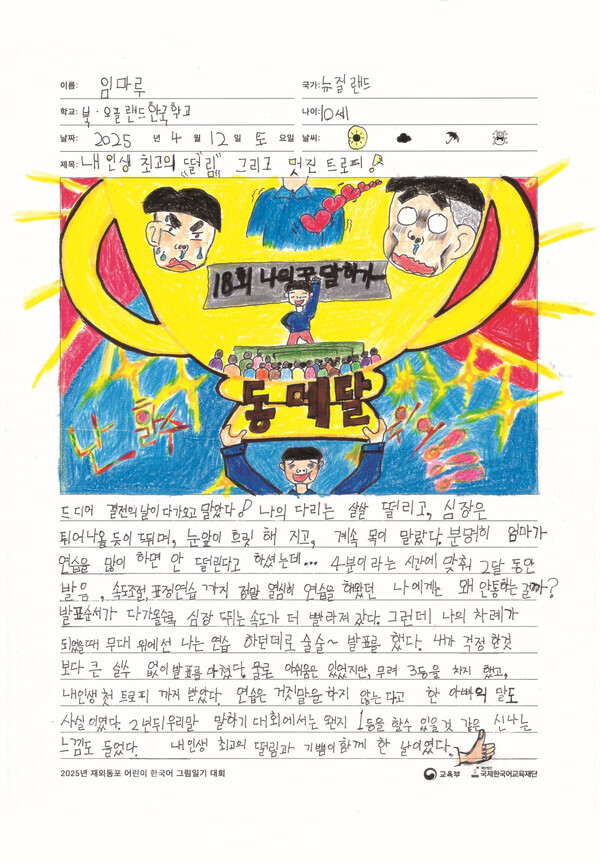 이름: 임마루
국가: 뉴질랜드
학교: 북·오클랜드한국학교
나이: 10세
날짜: 2025 년 4 월 12 일 토 요일
날씨:
제목: 내 인생 최고의 "떨림" 그리고 멋진 트로피!
18회 나의 꿈 말하기
동메달
난 할수
있어
드디어 결전의 날이 다가오고 말았다! 나의 다리는 살살 떨리고, 심장은
튀어나올 듯이 뛰며, 눈앞이 흐릿 해 지고, 계속 목이 말랐다. 분명히 엄마가
연습을 많이 하면 안 떨린다고 하셨는데... 4분이라는 시간에 맞춰 2달 동안
발음, 속도조절, 표정연습 까지 정말 열심히 연습을 해왔던 나에게는 왜 안통하는 걸까?
발표순서가 다가올수록 심장 뛰는 속도가 더 빨라져 갔다. 그런데 나의 차례가
되었을때 무대 위에 선 나는 연습 하던데로 술술~ 발표를 했다. 내가 걱정 한것
보다 큰 실수 없이 발표를 마쳤다. 물론 아쉬움은 있었지만, 무려 3등을 차지 했고,
내인생 첫 트로피 까지 받았다. 연습은 거짓말을 하지 않는 다고 한 아빠의 말도
사실 이였다. 2년뒤 우리말 말하기 대회에서는 왠지 1등을 할수 있을것 같은 신나는
느낌도 들었다. 내 인생 최고의 떨림과 기쁨이 함께 한 날이였다.
2025년 재외동포 어린이 한국어 그림일기 대회
교육부
국제한국어교육재단